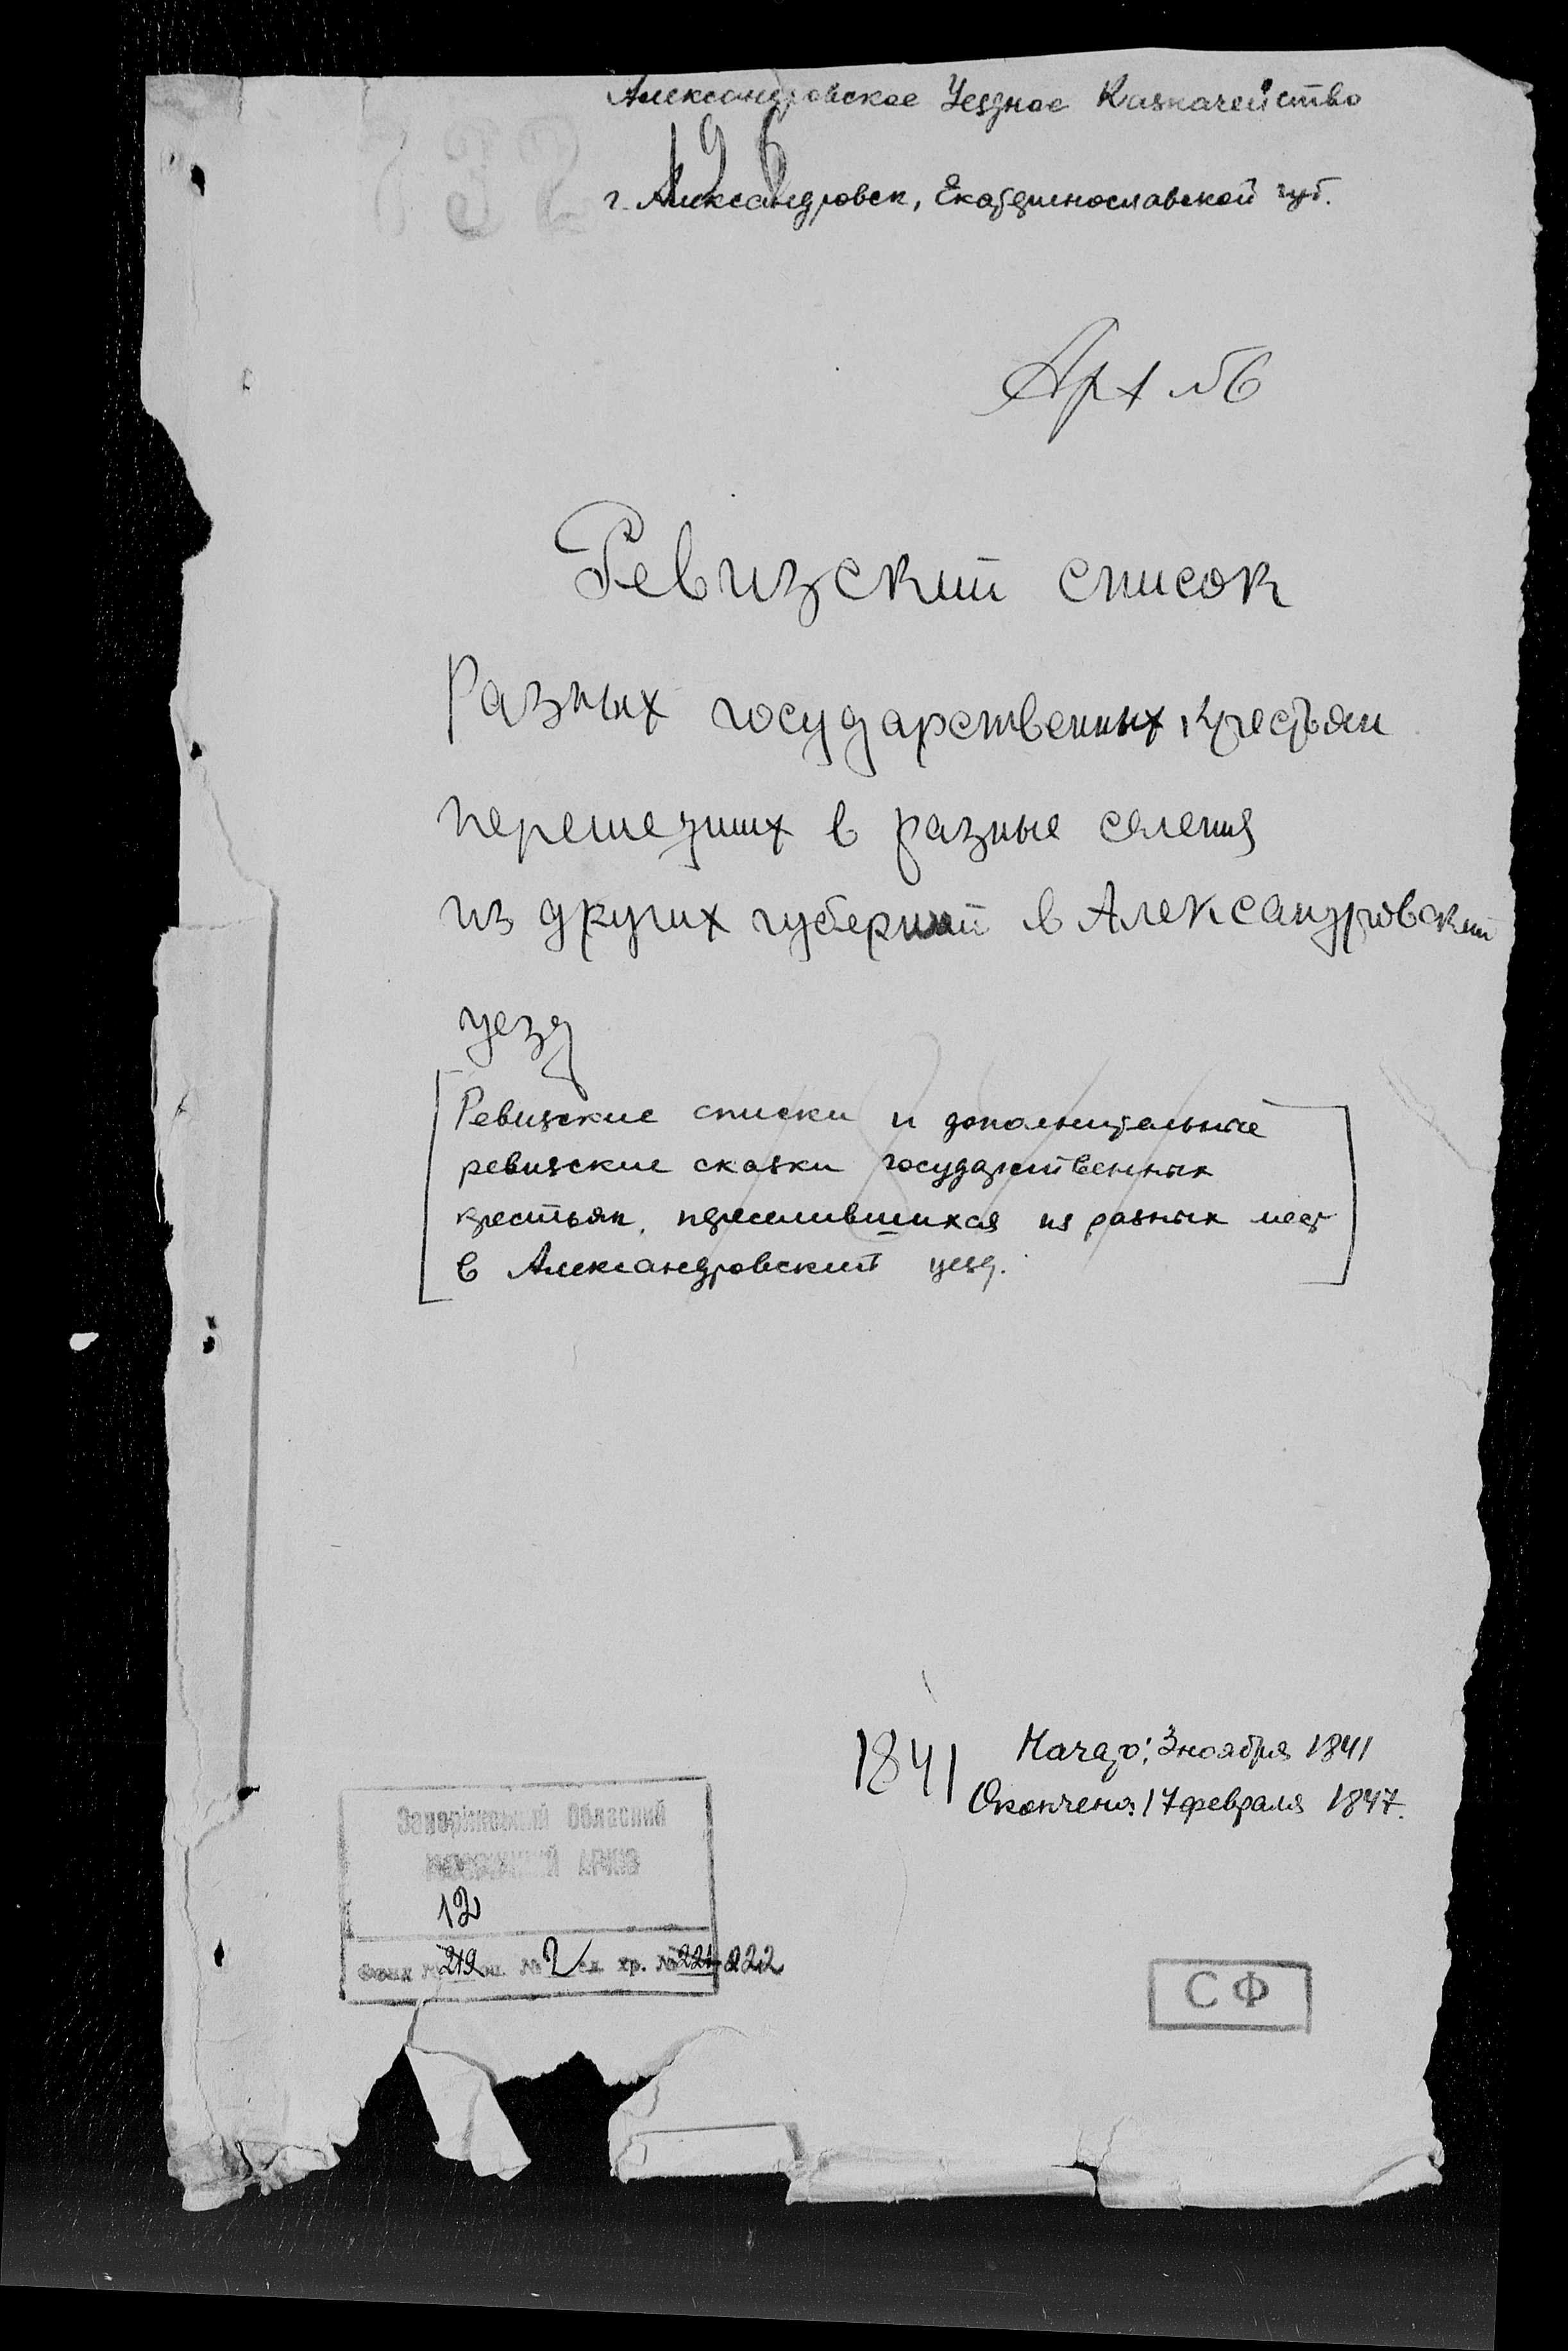 Александровское Уездное Казначейство
196
г. Александровск, Екатеринославской губ.
Арх №6
Ревизский список
Разных государственных крестьян
перешедших в разные селения
из других губерний в Александровский
уезд
Ревизские списки и дополнительные
ревизские сказки государственных
крестьян, переселившихся из разных мест
в Александровский уезд.
1841
Начато: 3 ноября 1841
Окончено: 17 февраля 1847.
Запорізький Обласний
АРХІВ
12
Фонд № 212 оп. № 2 ед. хр. № 221 222
СФ